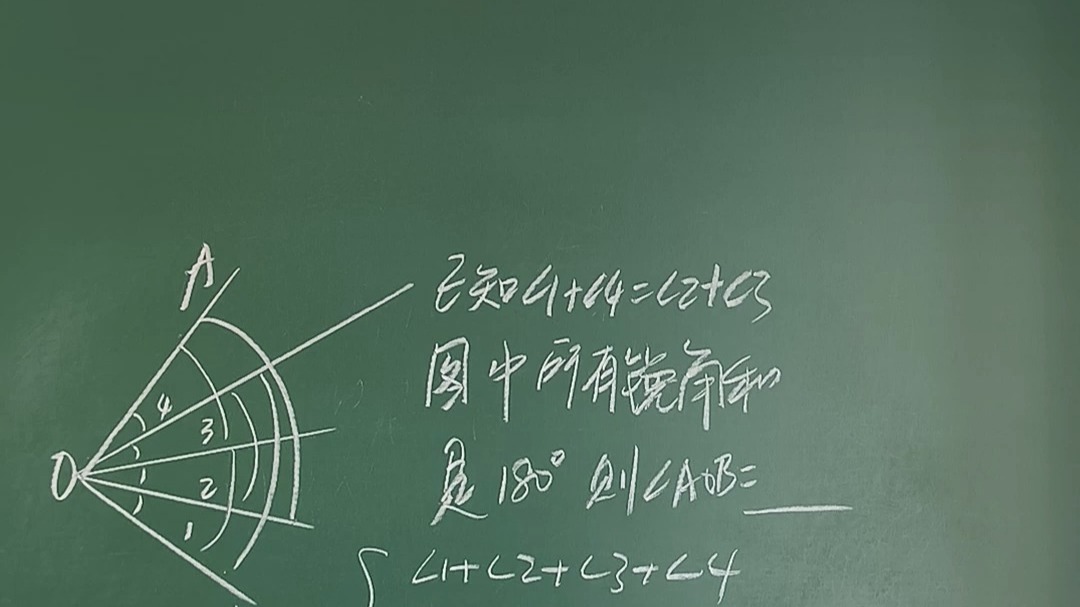 A
O
4
3
2
1
已知∠1+∠4=∠2+∠3
图中所有锐角和
是180° 则∠AOB=____
∠1+∠2+∠3+∠4